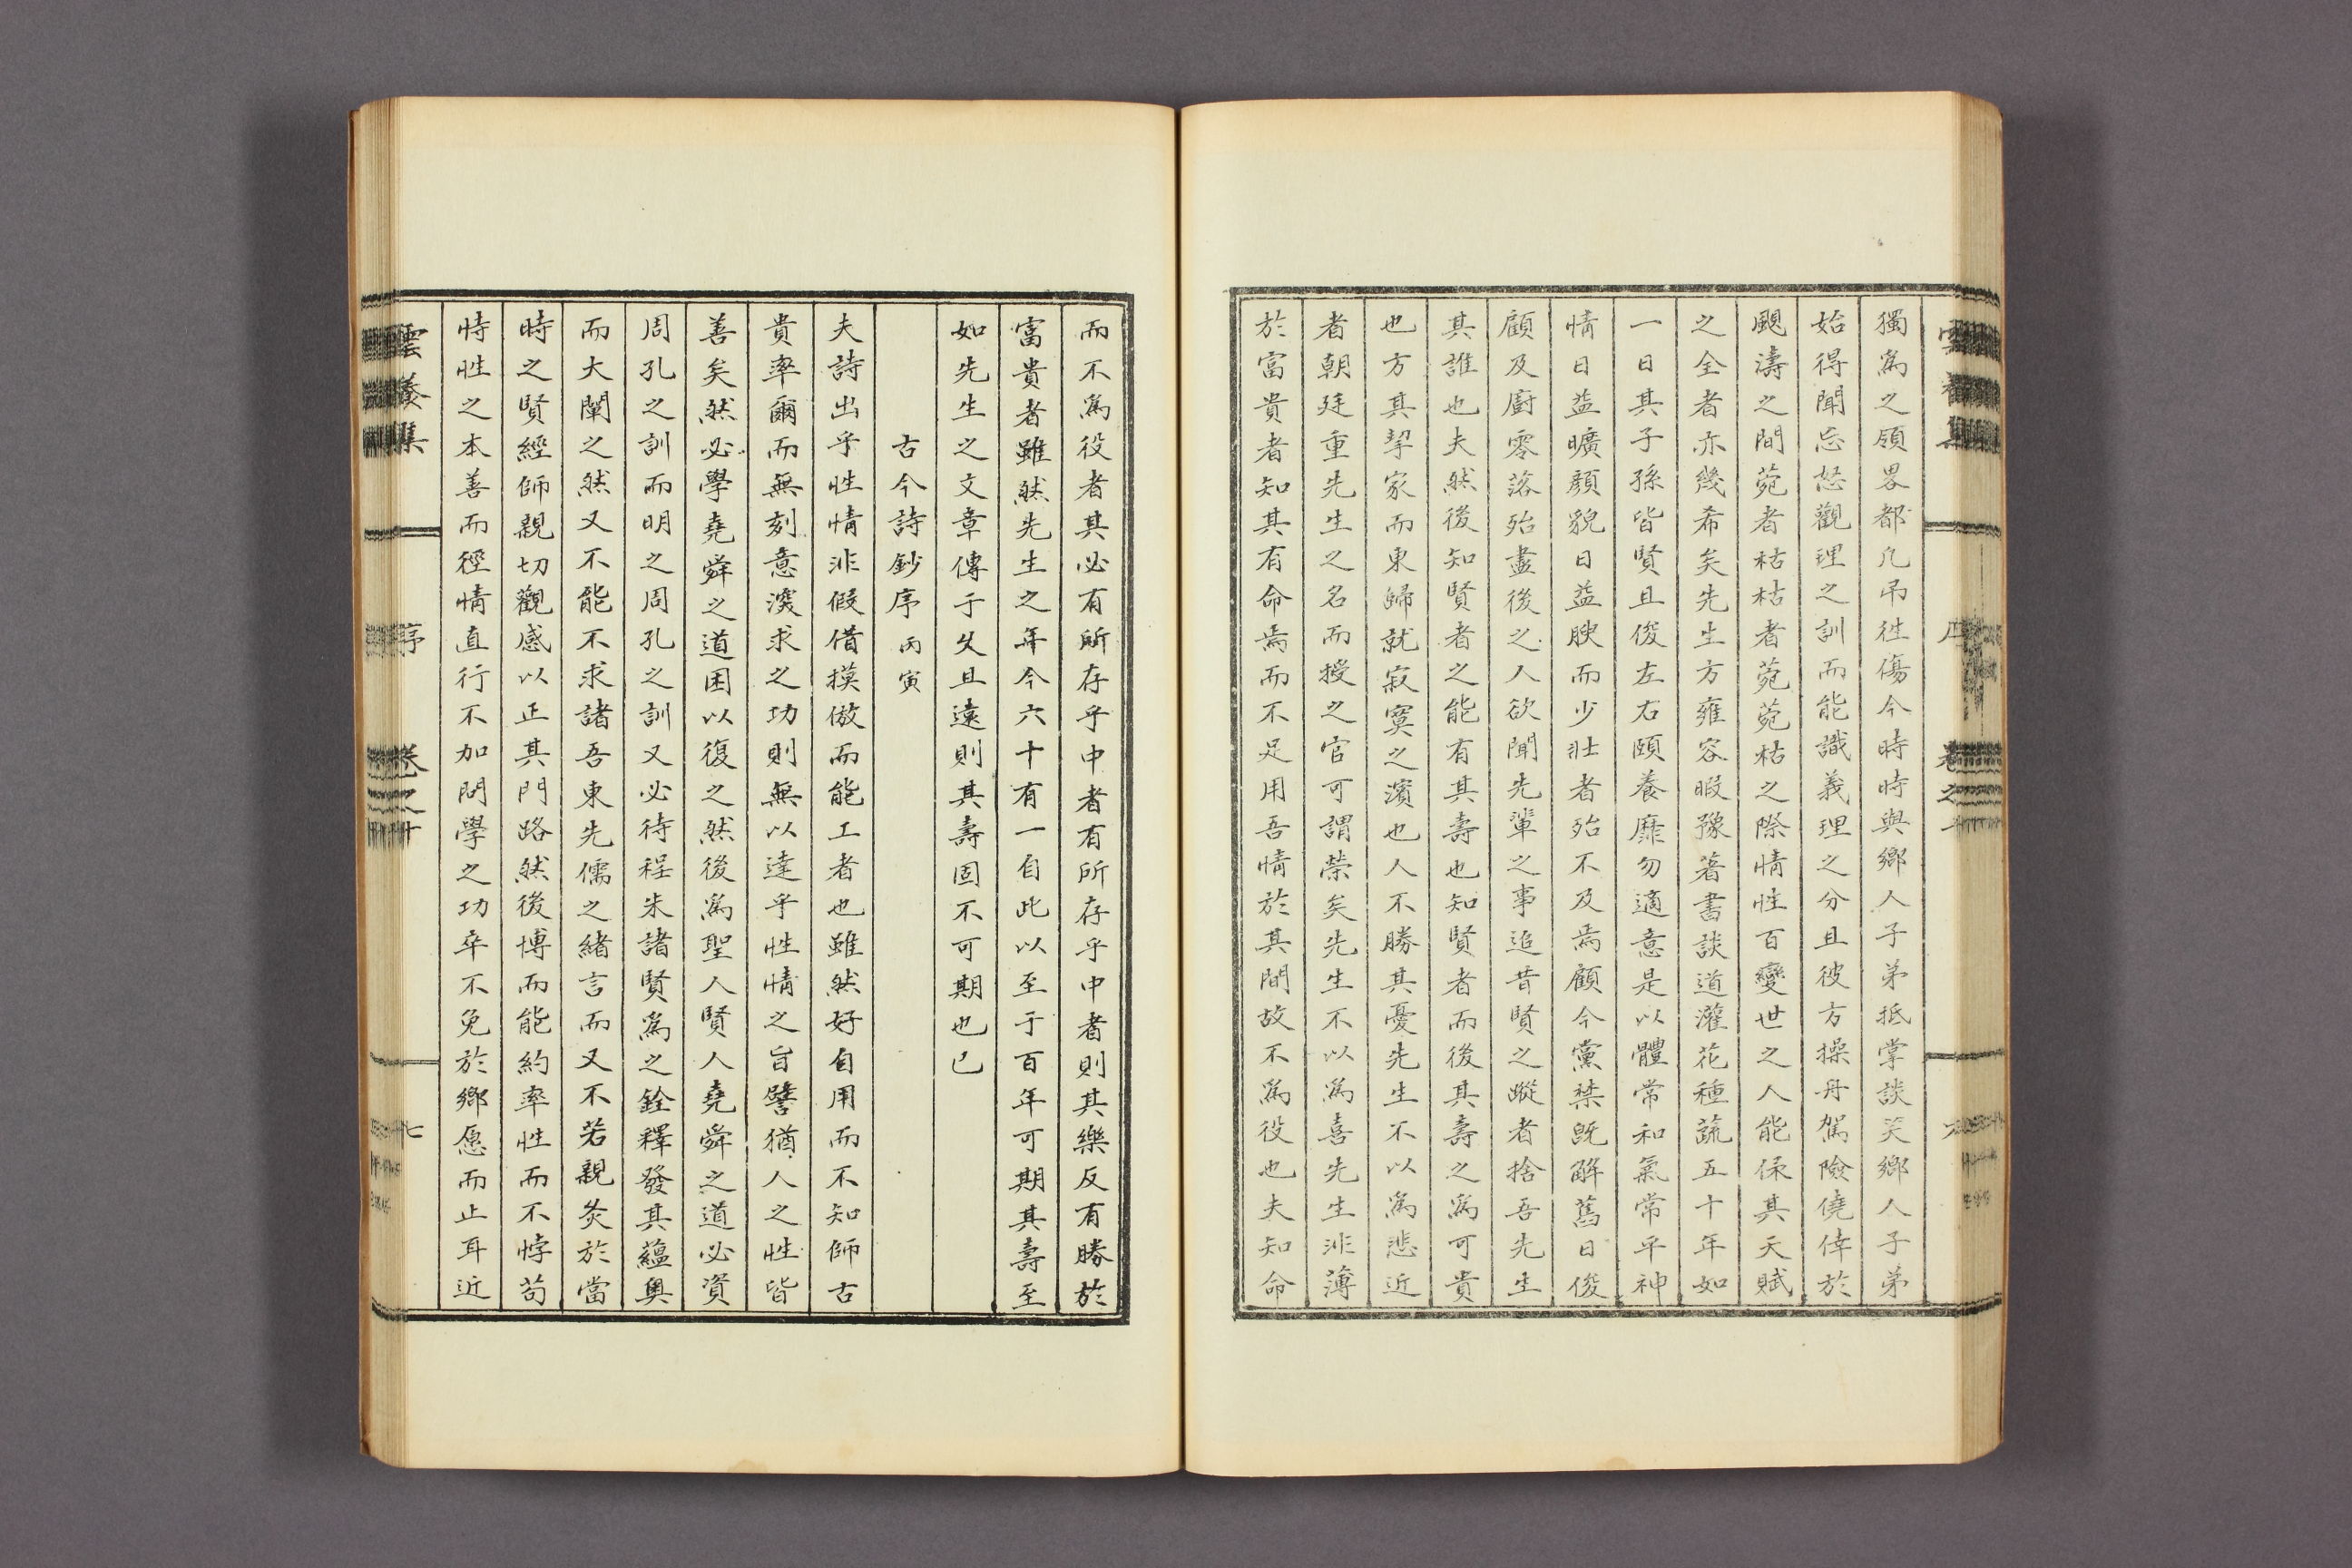 獨爲之領畧都凡吊徃傷今時時與鄉人子弟抵掌談笑鄉人子弟
始得聞忘怒觀理之訓而能識義理之分且彼方操舟駕險僥倖於
颶濤之間菀者枯枯者菀菀枯之際情性百變世之人能保其天賦
之全者亦幾希矣先生方雍容暇豫著書談道灌花種蔬五十年如
一日其子孫皆賢且俊左右頤養靡勿適意是以體常和氣常平神
情日益曠顏貌日益腴而少壯者殆不及焉顧今黨禁旣解舊日俊
顧及廚零落殆盡後之人欲聞先輩之事追昔賢之蹤者捨吾先生
其誰也夫然後知賢者之能有其壽也知賢者而後其壽之爲可貴
也方其挈家而東歸就寂寞之濱也人不勝其憂先生不以爲悲近
者朝廷重先生之名而授之官可謂榮矣先生不以爲喜先生非薄
於富貴者知其有命焉而不足用吾情於其間故不爲役也夫知命
而不爲役者其必有所存乎中者有所存乎中者則其樂反有勝於
富貴者雖然先生之年今六十有一自此以至于百年可期其壽至
如先生之文章傳于久且遠則其壽固不可期也已
古今詩鈔序 丙寅
夫詩出乎性情非假借摸倣而能工者也雖然好自用而不知師古
貴率爾而無刻意深求之功則無以達乎性情之旨譬猶人之性皆
善矣然必學堯舜之道困以復之然後爲聖人賢人堯舜之道必資
周孔之訓而明之周孔之訓又必待程朱諸賢爲之銓釋發其蘊奧
而大闡之然又不能不求諸吾東先儒之緒言而又不若親炙於當
時之賢經師親切觀感以正其門路然後博而能約率性而不悖苟
恃性之本善而徑情直行不加問學之功卒不免於鄉愿而止耳近
雲養集 序 卷之十 七